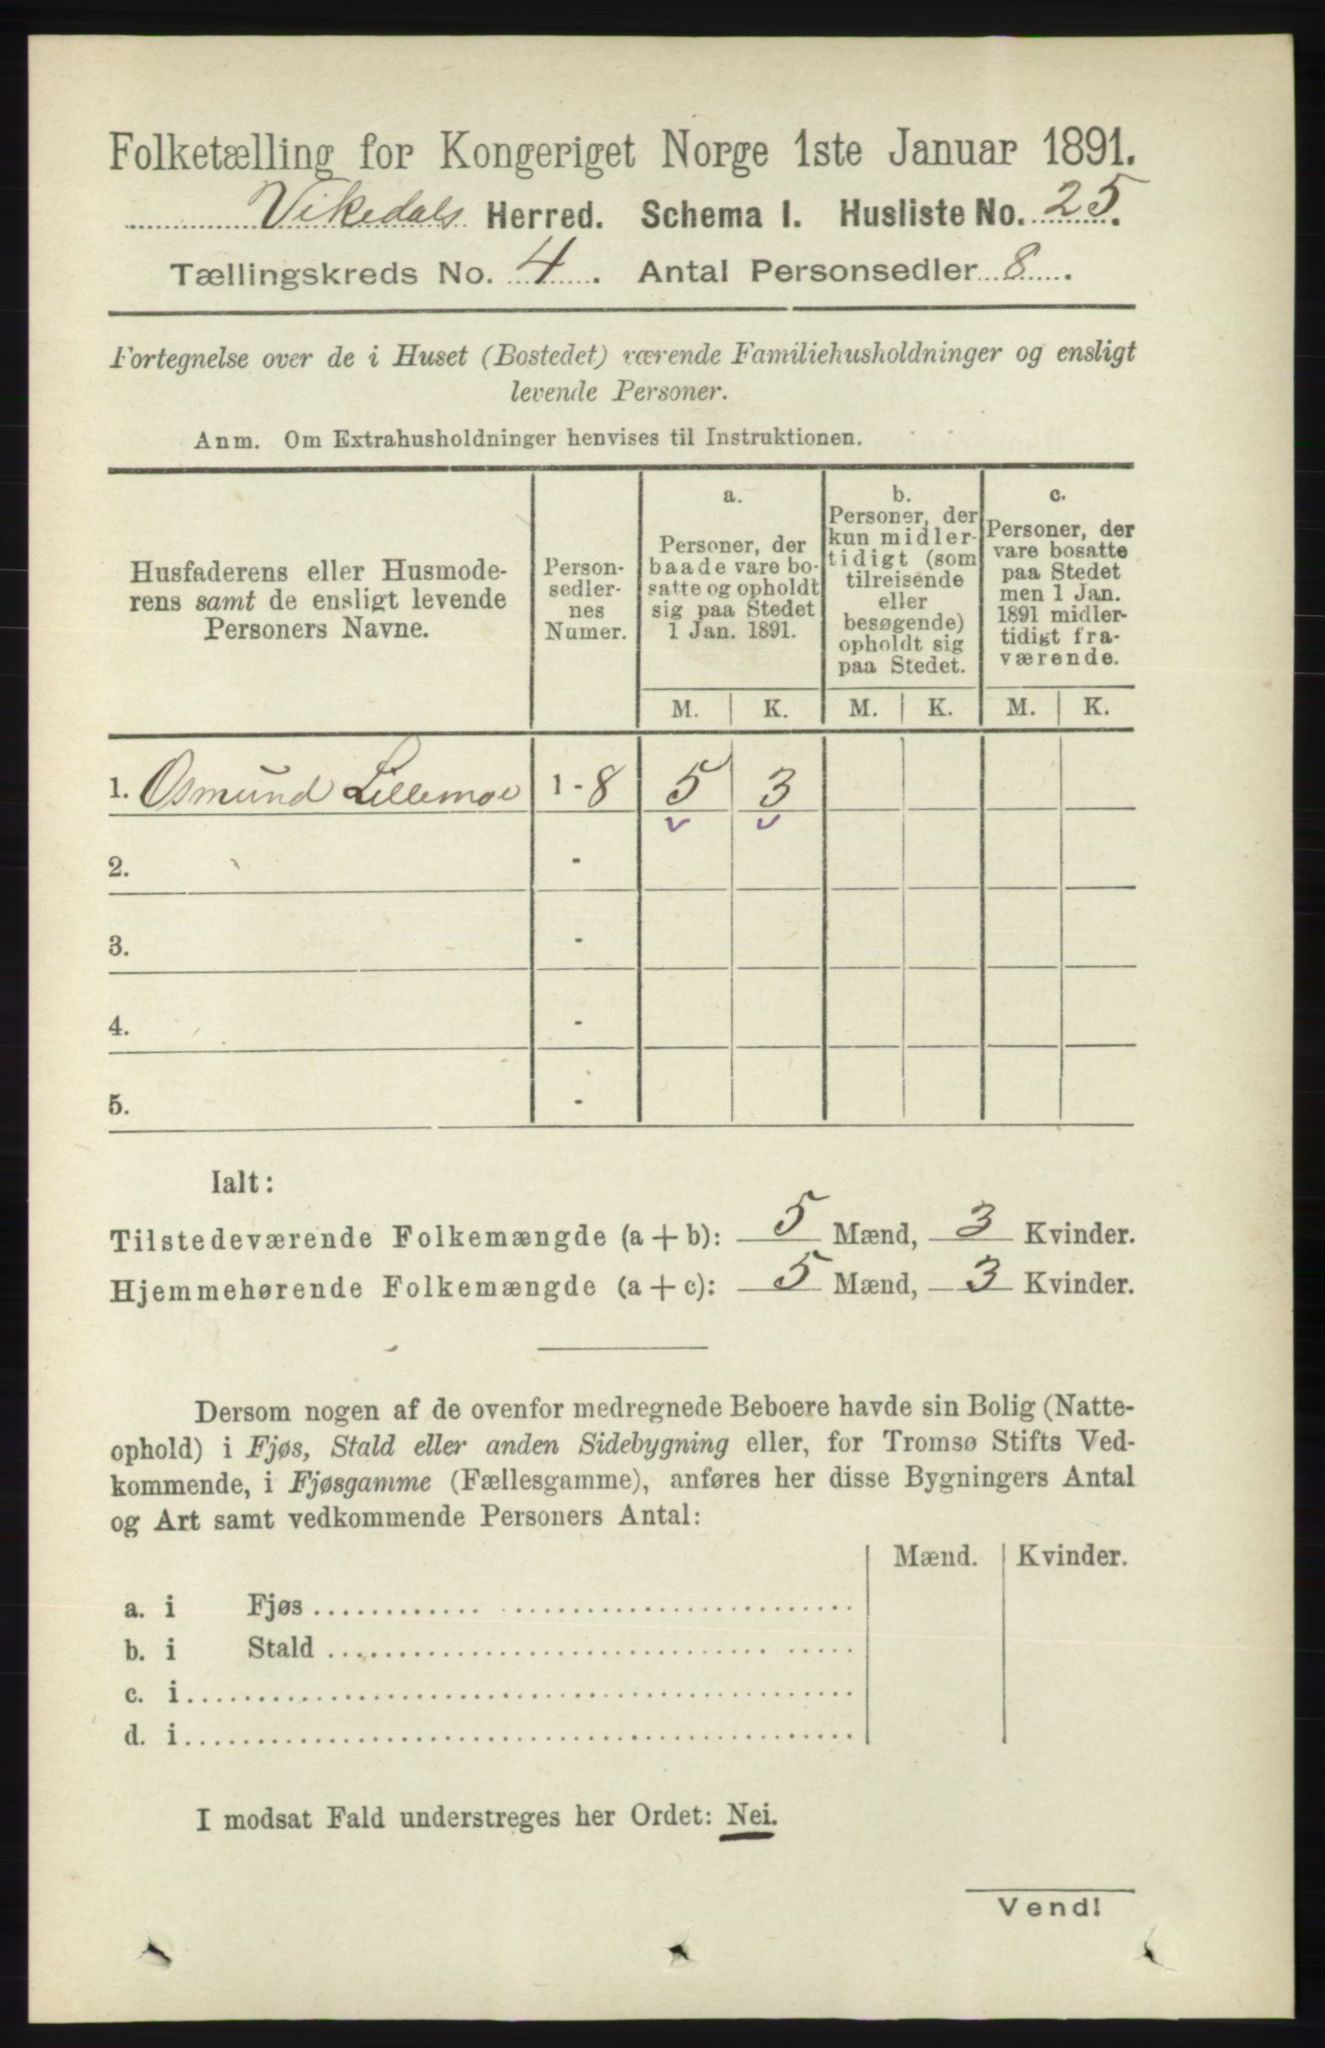 Folketælling for Kongeriget Norge 1ste Januar 1891.
Vikedals Herred. Schema I. Husliste No. 25.
Tællingskreds No. 4. Antal Personsedler 8.
Fortegnelse over de i Huset (Bostedet) værende Familiehusholdninger og ensligt
levende Personer.
Anm. Om Extrahusholdninger henvises til Instruktionen.
Husfaderens eller Husmode-
rens samt de ensligt levende
Personers Navne.
Person-
sedler-
nes
Numer.
a.
Personer, der
baade vare bo-
satte og opholdt
sig paa Stedet
1 Jan. 1891.
b.
Personer, der
kun midler-
tidigt (som
tilreisende
eller
besøgende)
opholdt sig
paa Stedet.
c.
Personer, der
vare bosatte
paa Stedet
men 1 Jan.
1891 midler-
tidigt fra-
værende.
M. K. M. K. M. K.
1. Osmund Lillemoe 1 - 8 5 3
2. -
3. -
4. -
5. -
Ialt:
Tilstedeværende Folkemængde (a + b): 5 Mænd, 3 Kvinder.
Hjemmehørende Folkemængde (a + c): 5 Mænd, 3 Kvinder.
Dersom nogen af de ovenfor medregnede Beboere havde sin Bolig (Natte-
ophold) i Fjøs, Stald eller anden Sidebygning eller, for Tromsø Stifts Ved-
kommende, i Fjøsgamme (Fællesgamme), anføres her disse Bygningers Antal
og Art samt vedkommende Personers Antal:
Mænd. Kvinder.
a. i Fjøs
b. i Stald
c. i
d. i
I modsat Fald understreges her Ordet: Nei.
Vend!